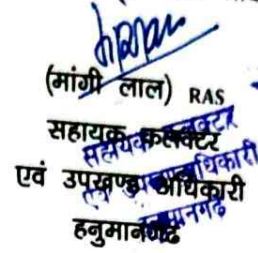 (मांगी लाल) RAS
सहायक कलक्टर
एवं उपखण्ड अधिकारी
हनुमानगढ
सहायक कलक्टर
एवं उपखण्ड अधिकारी
हनुमानगढ